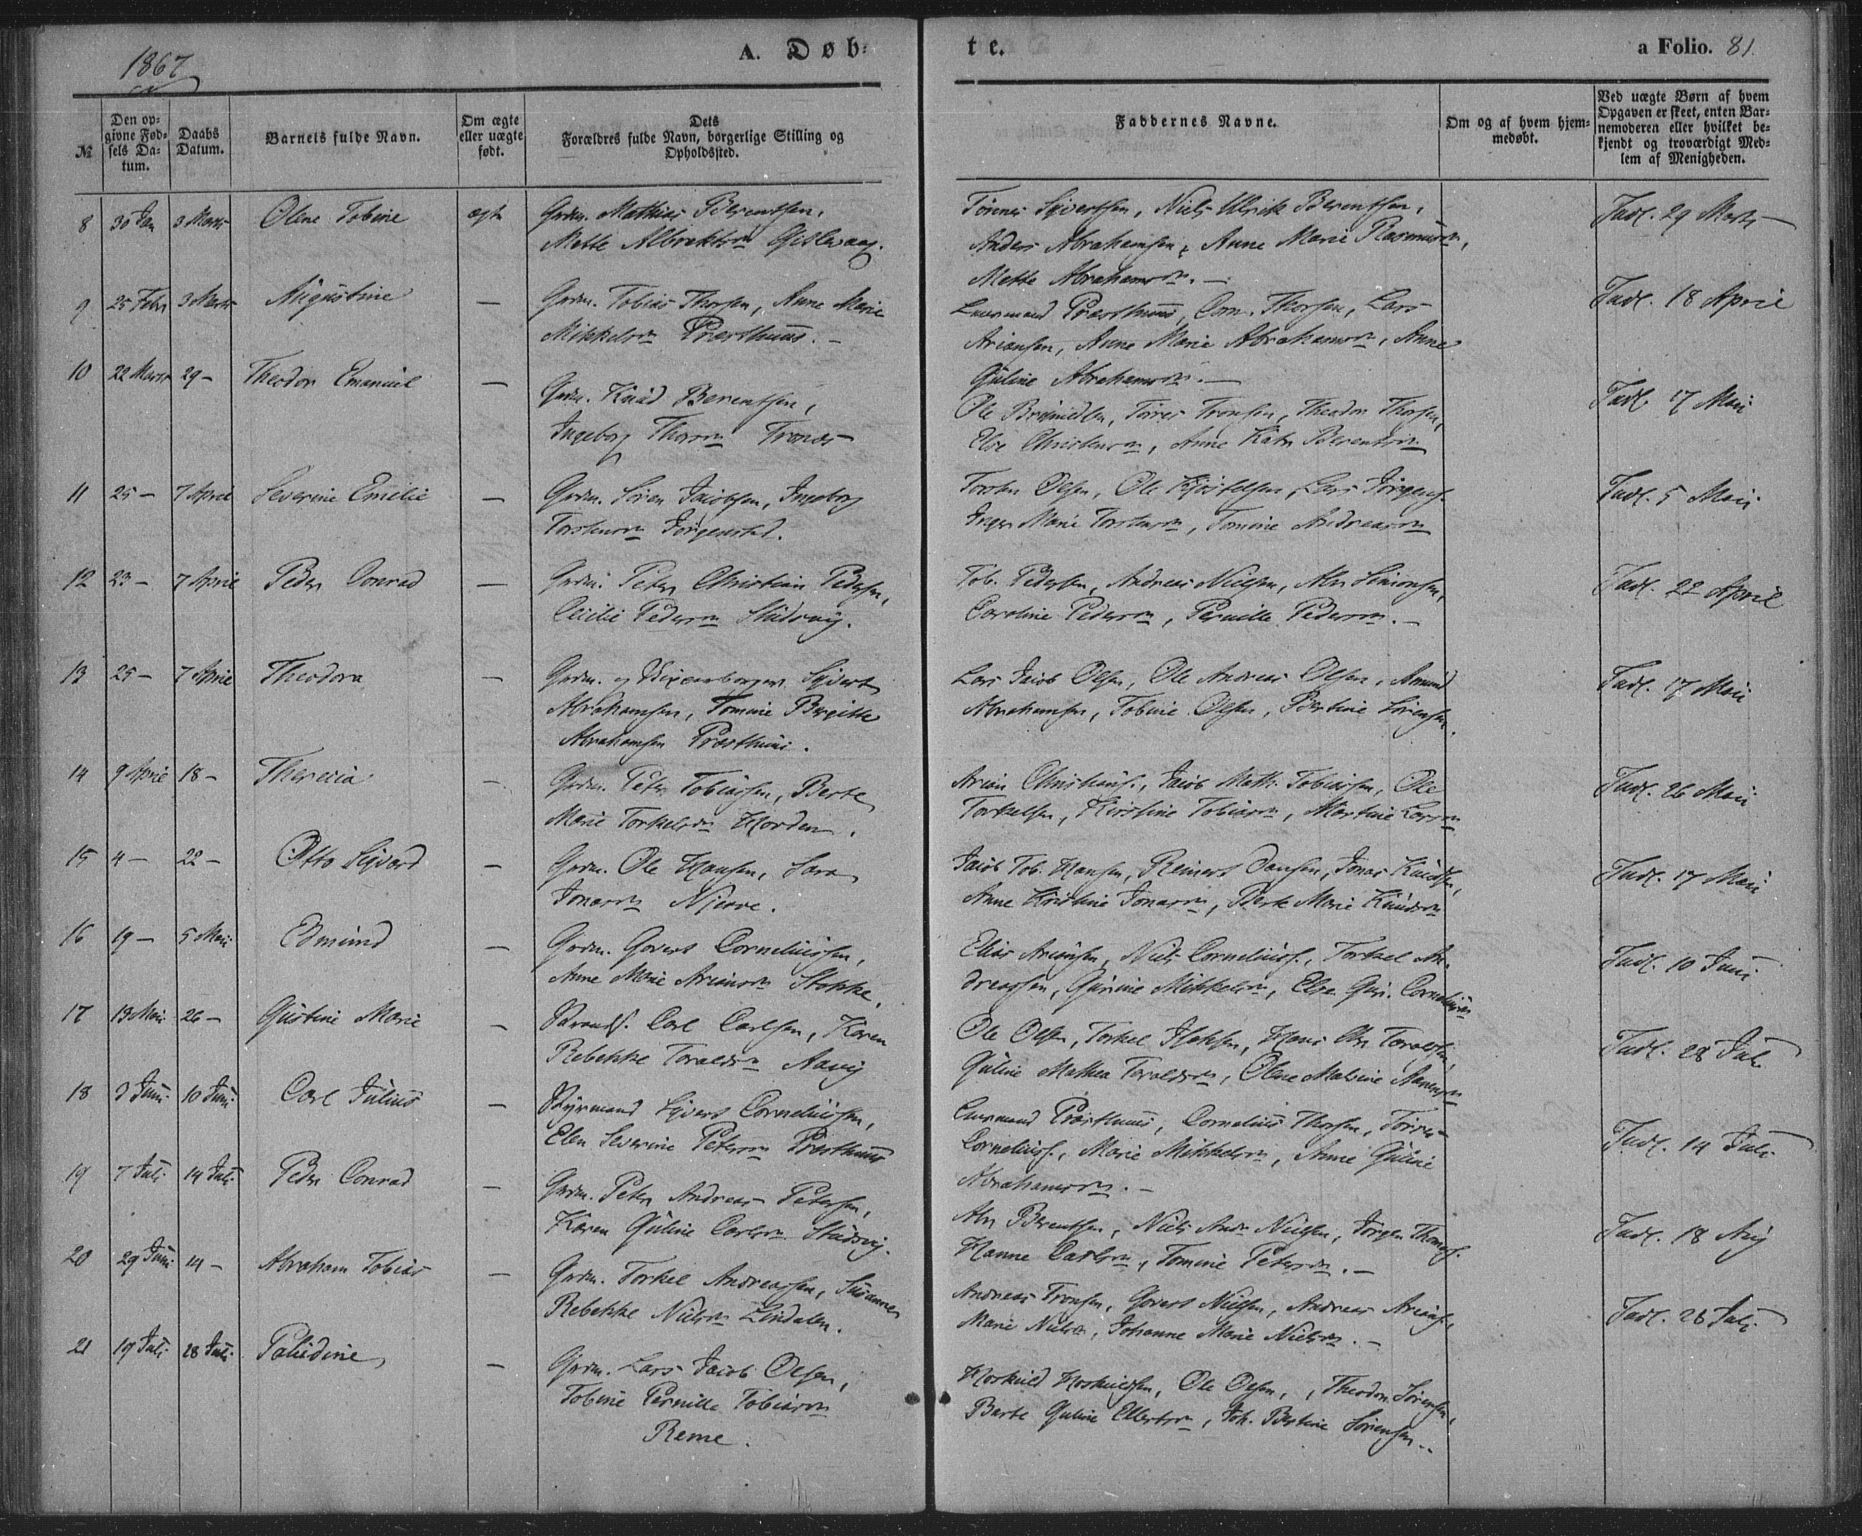 1867
A. Døb=
te.
a Folio. 81.
№
Den opgivne Fødsels Datum.
Daabs Datum.
Barnets fulde Navn.
Om ægte eller uægte født.
Dets Forældres fulde Navn, borgerlige Stilling og Opholdssted.
Faddernes Navne.
Om og af hvem hjemmedøbt.
Ved uægte Børn af hvem Opgaven er skeet, enten Barnemoderen eller hvilket bekjendt og troværdigt Medlem af Menigheden.
8 30 Jan 3 Marts Olene Tobine ægte Grdm. Mathias Berentsen,
Mette Albrektsn Gislevaag.
Tønnes Sivertsen, Niels Ulrik Berentsen,
Anders Abrahamsen, Anne Marie Rasmusn,
Mette Abrahamsn. —
Tadl. 29 Marts
9 25 Febr 3 Marts Augustine — Grdm. Tobias Thorsen, Anne Marie
Mikkelsn Præsthuus. —
Laurmand Præsthuus, Corn. Thorsen, Lars
Ariansen, Anne Marie Abrahamsn, Anne
Guline Abrahamsn. —
Tadl. 18 April
10 22 Marts 29 — Theodor Emanuel — Grdm. Knud Berentsen,
Ingeborg Thorsn Trones
Ole Theodor Thorsen,
Else Christensn, Anne Kath Berentsn
Tadl. 17 Mai
11 25 — 7 April Severine Emilie — Grdm. Søren Jacobsen, Ingeborg
Torstensn Jørgenstad.
Torsten Olsen, Ole Kjøstelsen, Lars Jørgens.
Inger Marie Torstensn, Tomine Andreasn
Tadl. 5 Mai
12 23 — 7 April Peder Conrad — Grdm. Peter Christian Pedersen,
Cicilie Pedersn Studvig.
Tob. Pedersen, Andreas Nielsen, Abr Simonsen,
Caroline Pedersn, Pernille Pedersn. —
Tadl. 22 April
13 25 — 7 April Theodora — Grdm. og Sivert
Abrahamsen, Tomine Birgitte
Abrahamsen Præsthuus.
Lars Jacob Olsen, Ole Andreas Olsen, Amund
Abrahamsen, Tobine Olsen, Bertine Sørensen.
Tadl. 17 Mai
14 9 April 18 — Theresia — Grdm. Peter Tobiassen, Berte
Marie Torkelsn Horden.
Arian Christians., Jacob Math. Tobiassen, Ole
Torkelsen, Kirstine Tobiasn, Martine Larsn
Tadl. 26 Mai
15 4 — 22 — Otto Sivard — Grdm. Ole Hansen, Sara
Jonasn Njerve.
Jacob Tob. Hansen, Reinert Jansen, Jonas Knudsen,
Anne Kirstine Jonasn, Berte Marie Knudsn
Tadl. 17 Mai
16 19 — 5 Mai Edmund — Grdm. Govert Corneliussen,
Anne Marie Ariansn Stokke.
Elias Ariansen, Niels Cornelius., Torkel An-
dreassen, Gurine Mikkelsn, Else Gur. Corneliusn
Tadl. 10 Juni
17 13 Mai 26 — Gustine Marie — Strands. Carl Carlsen, Karen
Rebekke Toraldsn Aavig
Ole Olsen, Torkel Hans Chr Toraldsen,
Guline Mathea Toraldsn, Oline Malvine Aanensn
Tadl. 28 Juli
18 3 Juni 10 Juni Carl Julius — Styrmand Sivert Corneliussen,
Elen Severine Petersn Præsthuus
Laurmand Præsthuus, Cornelius Thorsen, Torres
Cornelius., Marie Mikkelsn, Anne Guline
Abrahamsn. —
Tadl. 14 Juli
19 7 Juli 14 Juli Peder Conrad — Grdm. Peter Andreas Petersen,
Karen Guline Carlsn Studvig.
Abr Berentsen, Niels Andr Nielsen, Jørgen Thomas.
Hanne Carlsn, Tomine Petersn. —
Tadl. 18 Aug
20 29 Juni 14 — Abraham Tobias — Grdm. Torkel Andreassen, Susanne
Rebekke Nielsn Lindalen.
Andreas Tronsen, Govert Nielsen, Andreas Arians.,
Marie Nielsn, Johanne Marie Nielsn. —
Tadl. 28 Juli
21 19 Juli 28 Juli Paludine — Grdm. Lars Jacob Olsen,
Tobine Pernille Tobiasn
Reme.
Horkild Horkildsen, Ole Olsen, Theodor Sørensen,
Berte Guline Ellertsn, Joh. Bertine Sørensen.